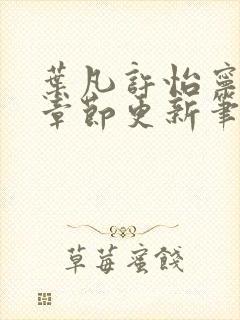 葉凡許怡寧
章節更新筆
草莓蜜餞